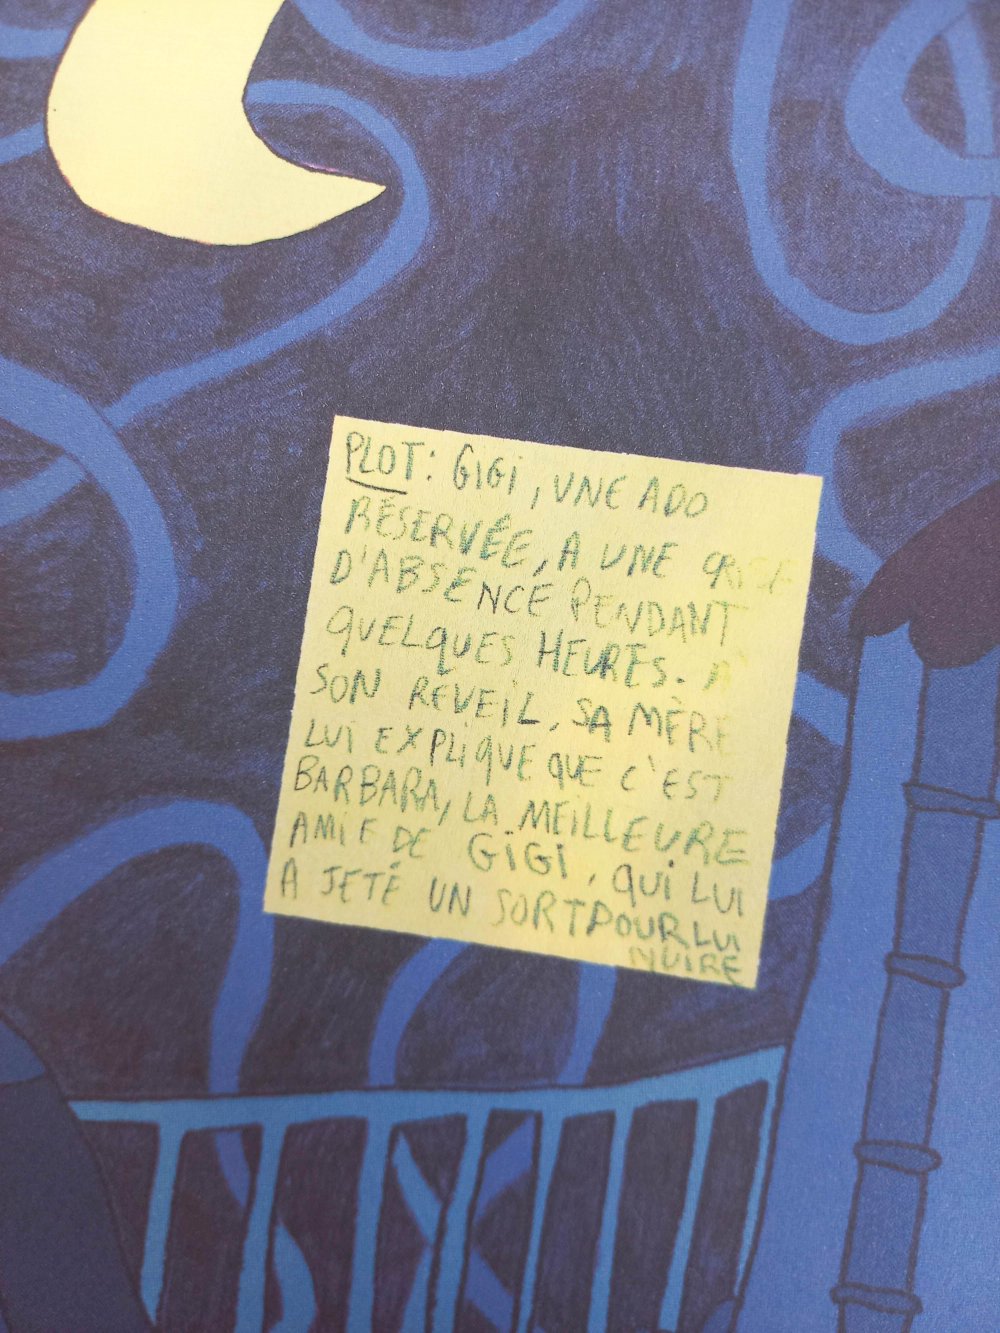 PLOT: GiGi, UNE ADO
RÉSERVÉE, A UNE CRISE
D'ABSENCE PENDANT
QUELQUES HEURES. À
SON REVEIL, SA MÈRE
LUI EXPLIQUE QUE C'EST
BARBARA, LA MEILLEURE
AMIE DE GiGi, QUI LUI
A JETÉ UN SORT POUR LUI
NUIRE